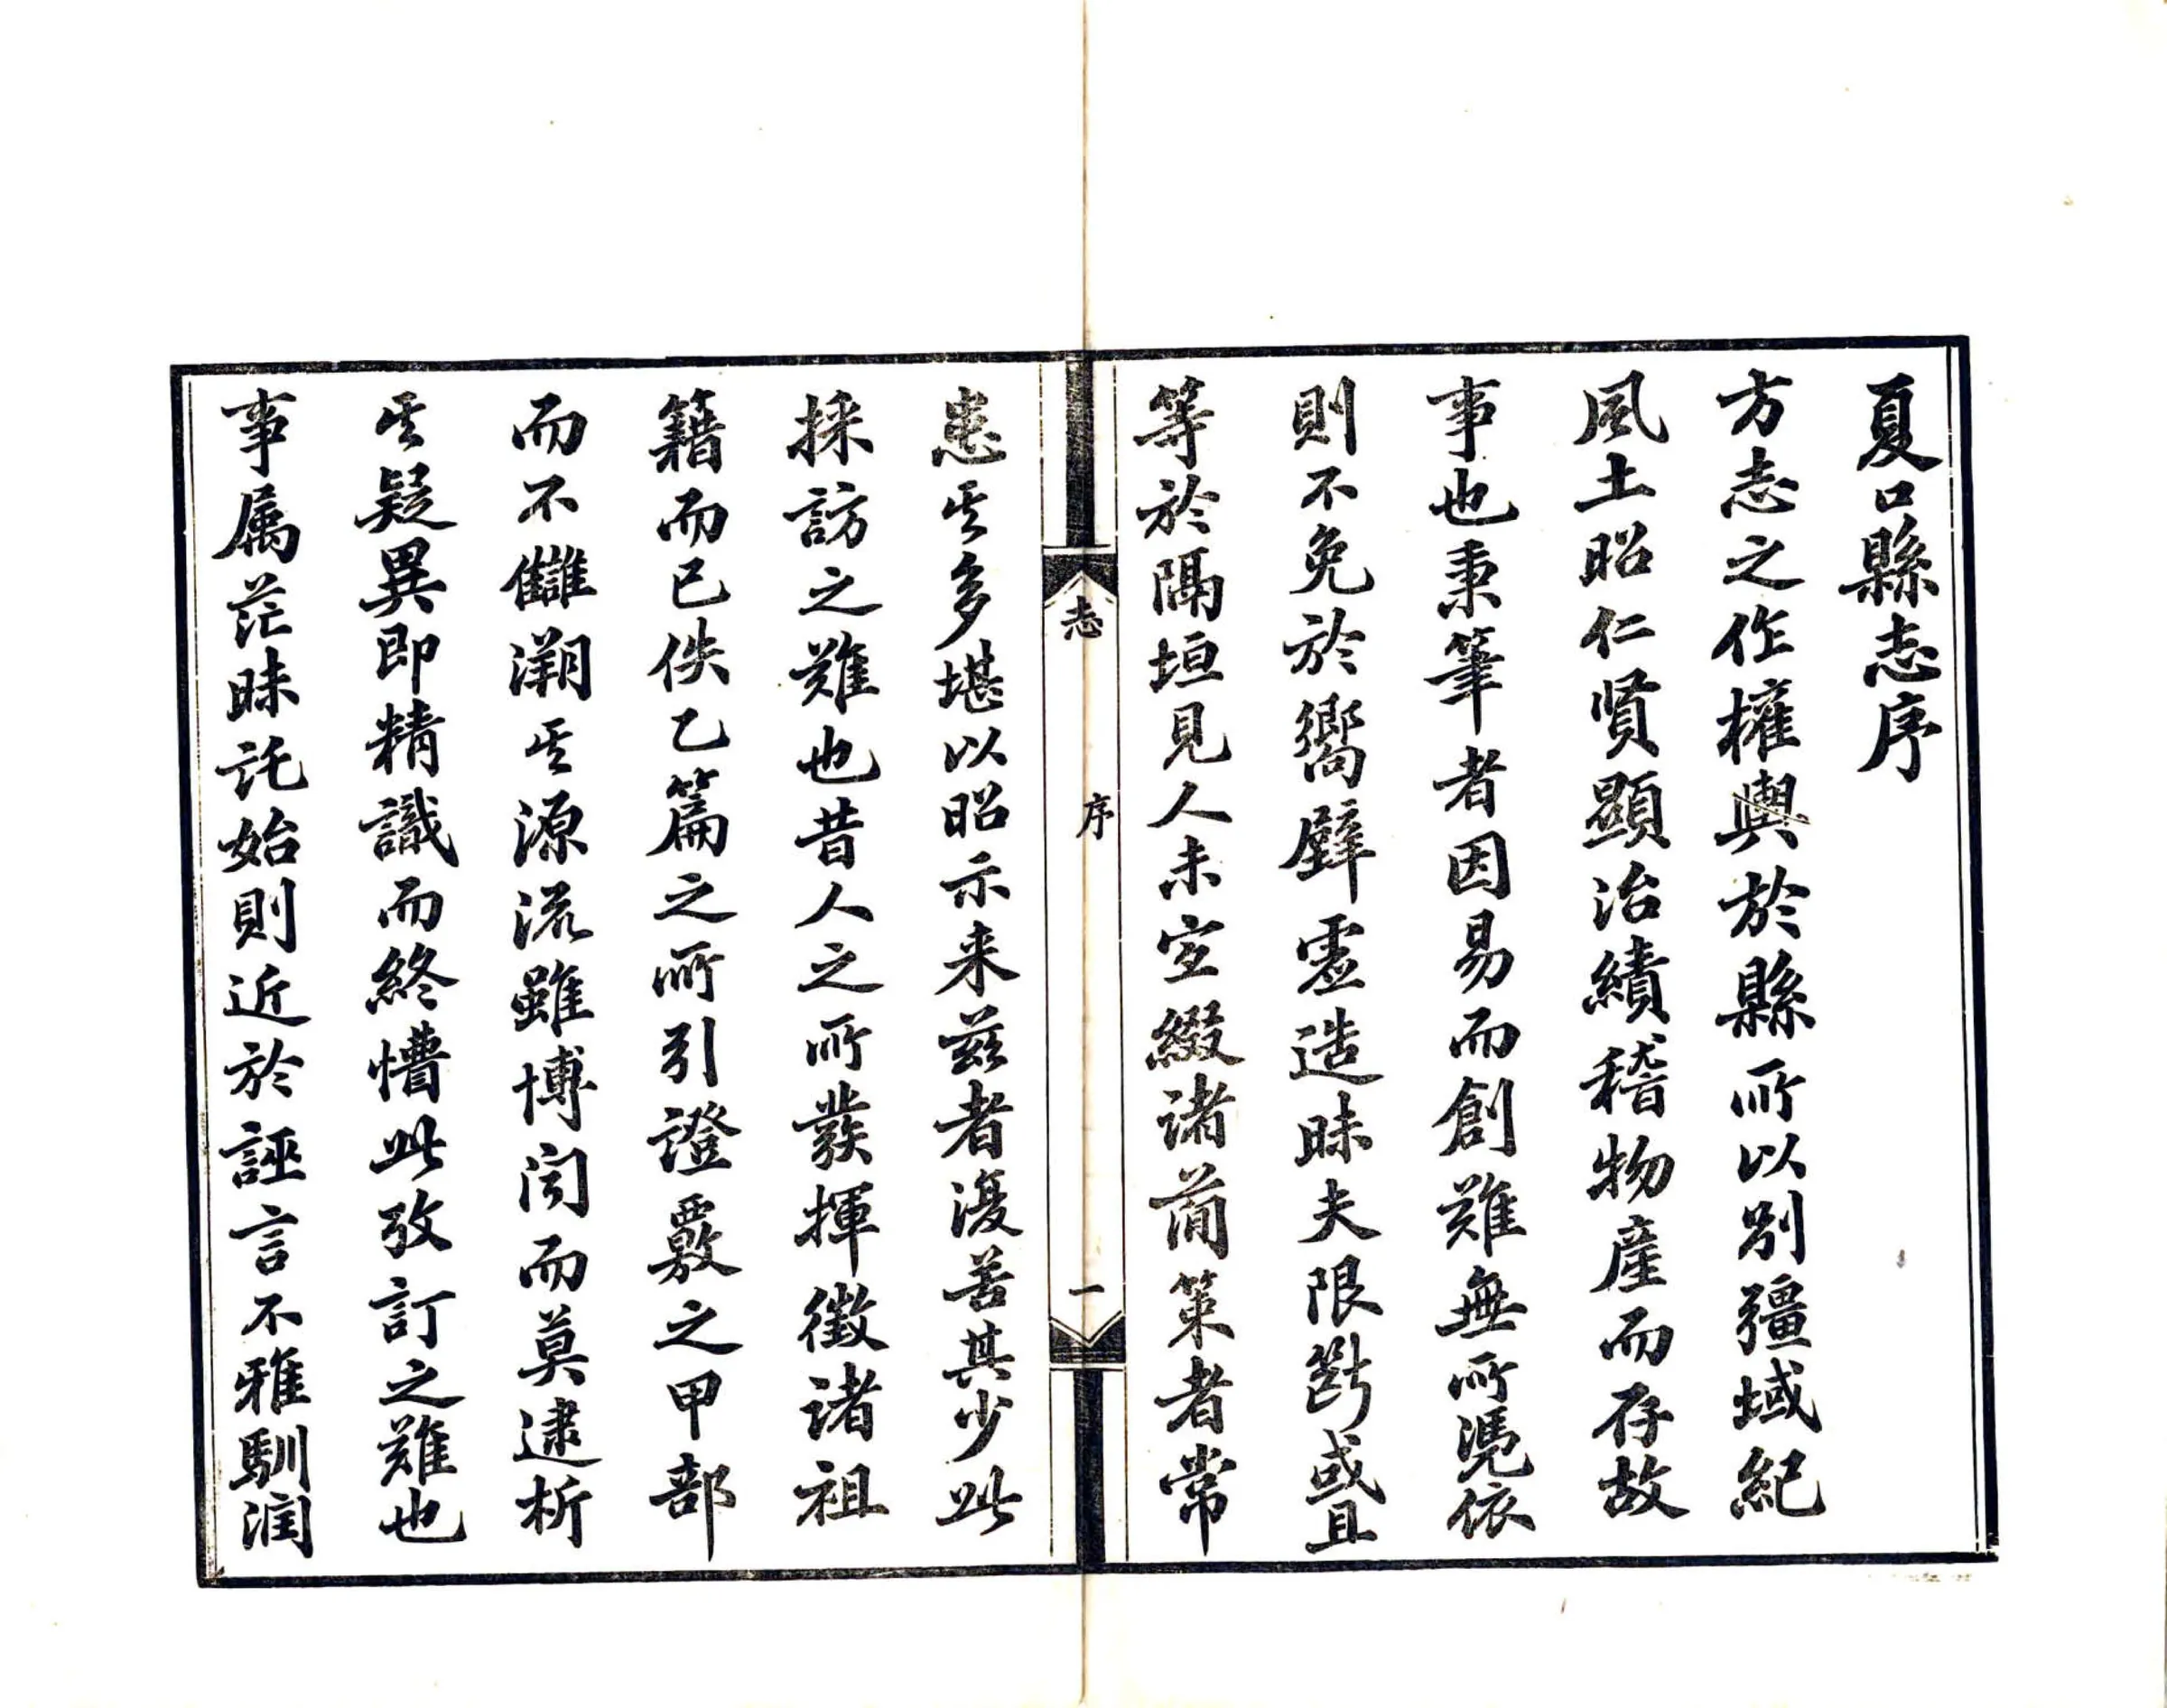 夏口縣志序
方志之作權輿於縣所以別疆域紀
風土昭仁賢顯治績稽物產而存故
事也秉筆者因易而創難無所憑依
則不免於嚮壁虛造昧夫限斷或且
等於隔垣見人未空綴諸簡策者常
志
序
一
患其多堪以昭示来兹者復苦其少此
採訪之難也昔人之所發揮徵諸祖
籍而已佚乙篇之所引證覈之甲部
而不讎溯其源流雖博洽而莫逮析
其疑異即精識而終懵此攷訂之難也
事属茫昧託始則近於誣言不雅馴潤